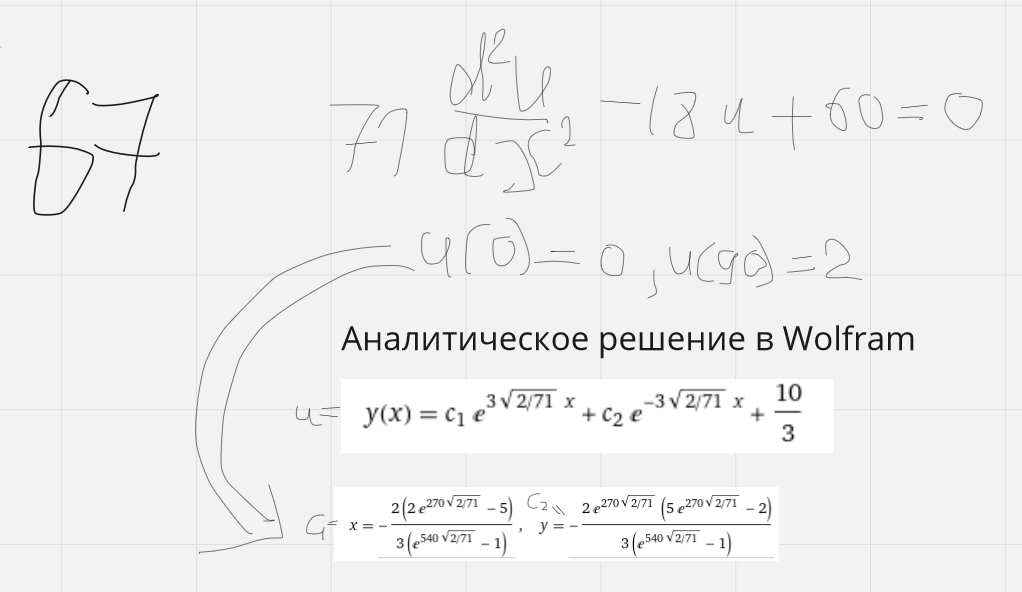 67
71 d²u/dx² -18u + 60 = 0
u(0) = 0, u(90) = 2
Аналитическое решение в Wolfram
u= y(x) = c₁ e^(3√(2/71) x) + c₂ e^(-3√(2/71) x) + 10/3
C₁= x = - 2(2 e^(270√(2/71)) - 5) / 3(e^(540√(2/71)) - 1), C₂ = y = - 2 e^(270√(2/71)) (5 e^(270√(2/71)) - 2) / 3(e^(540√(2/71)) - 1)